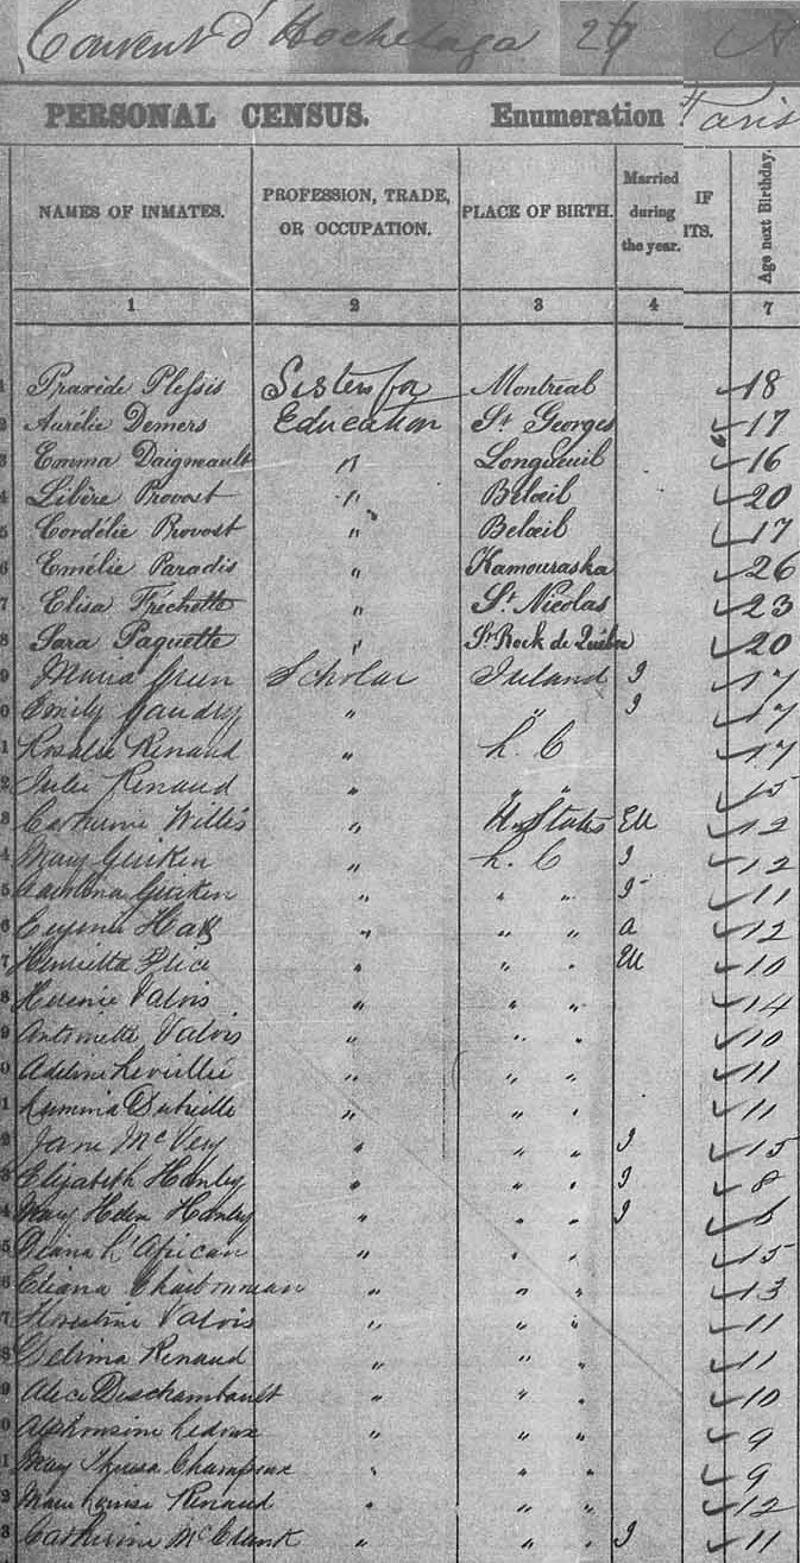 Convent d'Hochelaga 27 A
PERSONAL CENSUS. Enumeration Paris
NAMES OF INMATES. PROFESSION, TRADE, OR OCCUPATION. PLACE OF BIRTH. Married during the year. IF ITS. Age next Birthday.
1 2 3 4 7
1 Praxède Plessis Sisters for Montreal 18
2 Aurélie Demers Education St Georges 17
3 Emma Daigneault " Longueuil 16
4 Libère Provost " Belœil 20
5 Cordélie Provost " Belœil 17
6 Emélie Paradis " Kamouraska 26
7 Elisa Fréchette " St Nicolas 23
8 Sara Paquette " St Rock de Québec 20
9 Maria Green Scholar Ireland I 17
0 Emily Gaudry " " I 17
1 Rosalie Renaud " L. C 17
2 Julie Renaud " " " 15
3 Catherine Willis " U. States EU 12
4 Mary Guiken " L. C I 12
5 Carolina Guiken " " " I 11
6 Eugenie " " " a 12
7 Henrietta " " " EU 10
8 Valois " " " 14
9 Antoinette Valois " " " 10
0 Adeline Leveillé " " " 11
1 " " " 11
2 Jane McVey " " " I 15
3 Elizabeth Hanley " " " I 8
4 Mary Helen Hanley " " " I 6
5 Diana L'African " " " 15
6 Eliana Charbonneau " " " 13
7 Florestine Valois " " " 11
8 Delima Renaud " " " 11
9 Alice Deschambault " " " 10
0 Alphonsine Ledoux " " " 9
1 Mary Theresa Champeux " " " 9
2 Marie Louise Renaud " " " 12
3 Catherine McCrank " " " I 11